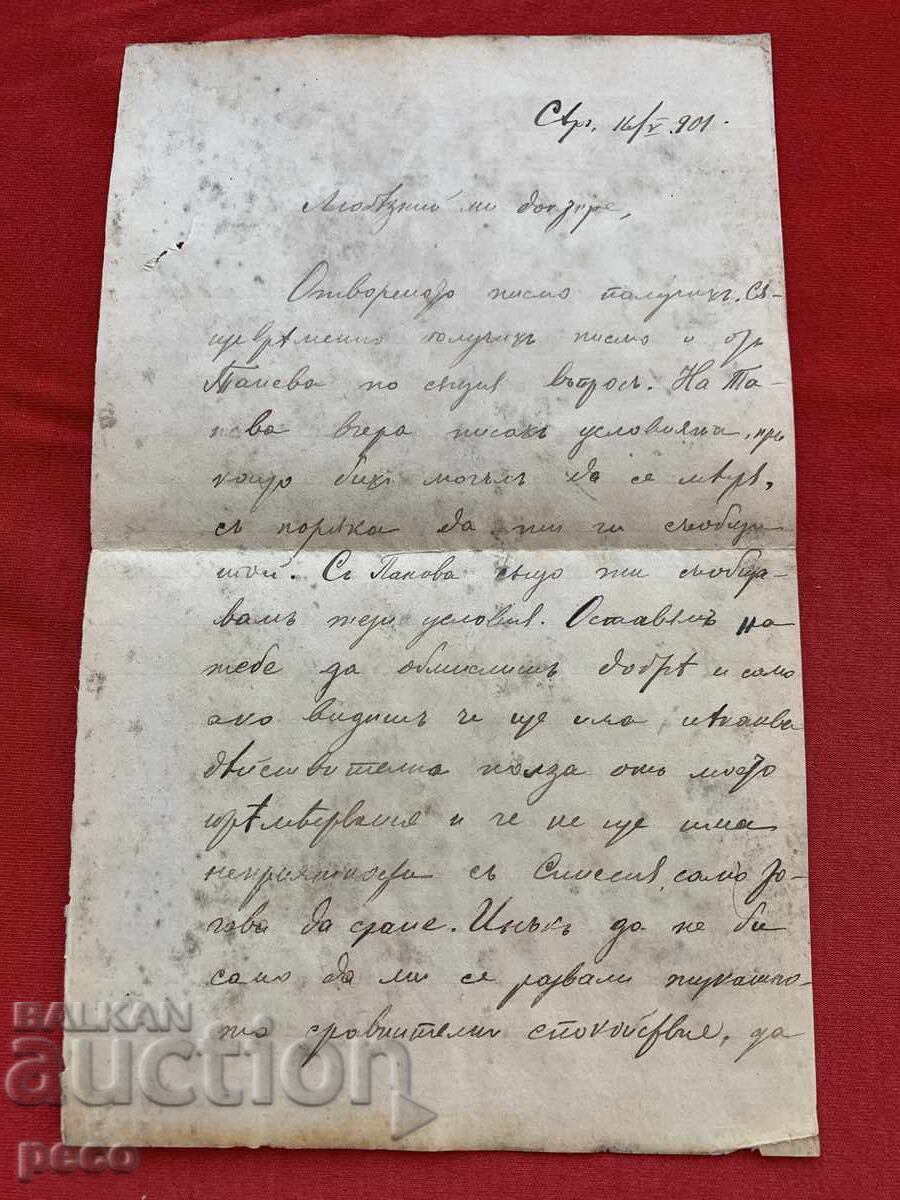 16/V 901.
Любезний ми докторе,
Отвореното писмо получихъ. Съ-
щеврѣменно получихъ писмо и отъ
Танева по същия въпросъ. На Та-
нева вчера писахъ условията, при
които бихъ могълъ да се мѣстѣ,
съ порѫка да ти ги съобщи
той. Съ
вамъ тези условия. Оставямъ на
тебе да обмислишъ добрѣ и само
ако видишъ че ще има нѣкаква
дѣйствителна полза отъ моето
прѣмѣстванье и че не ще има
неприятности съ само то-
гава да стане. Инакъ да не би
само да ми се развали тукашно-
то сравнително спокойствие, да
BALKAN
auction
peco